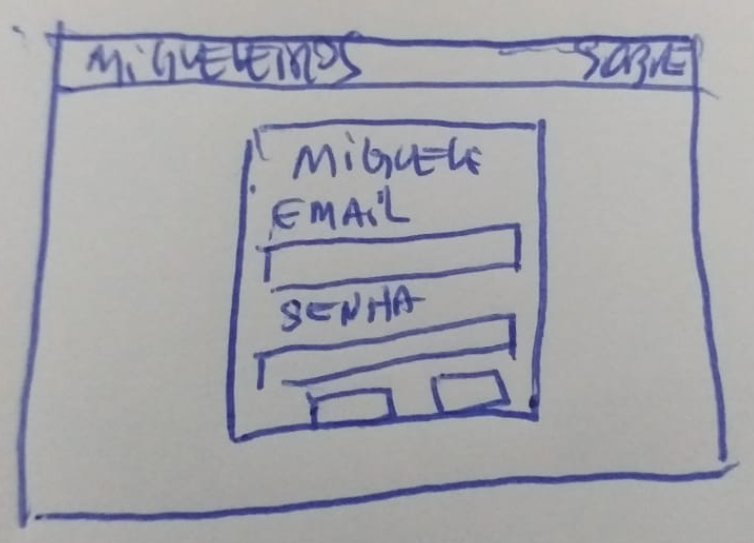 MiGUELEiROS SOBRE
MiGUELE
EMAiL
SENHA